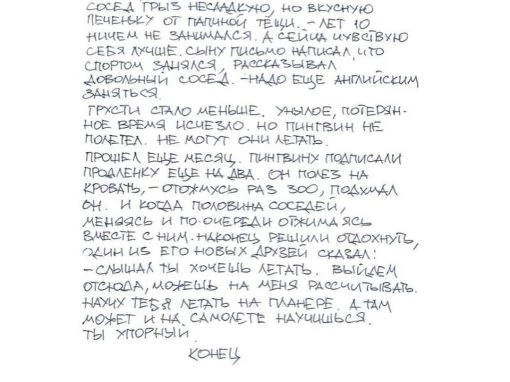 СОСЕД ГРЫЗ НЕСЛАДКУЮ, НО ВКУСНУЮ
ПЕЧЕНЬКУ ОТ ПАПИНОЙ ТЁЩИ. – ЛЕТ 10
НИЧЕМ НЕ ЗАНИМАЛСЯ. А СЕЙЧАС ЧУВСТВУЮ
СЕБЯ ЛУЧШЕ. СЫНУ ПИСЬМО НАПИСАЛ, ЧТО
СПОРТОМ ЗАНЯЛСЯ, РАССКАЗЫВАЛ
ДОВОЛЬНЫЙ СОСЕД. – НАДО ЕЩЕ АНГЛИЙСКИМ
ЗАНЯТЬСЯ.
ГРУСТИ СТАЛО МЕНЬШЕ. УНЫЛОЕ, ПОТЕРЯН-
НОЕ ВРЕМЯ ИСЧЕЗЛО. НО ПИНГВИН НЕ
ПОЛЕТЕЛ. НЕ МОГУТ ОНИ ЛЕТАТЬ.
ПРОШЕЛ ЕЩЕ МЕСЯЦ. ПИНГВИНУ ПОДПИСАЛИ
ПРОДЛЕНКУ ЕЩЕ НА ДВА. ОН ПОЛЕЗ НА
КРОВАТЬ, – ОТОЖМУСЬ РАЗ 300, ПОДУМАЛ
ОН. И КОГДА ПОЛОВИНА СОСЕДЕЙ,
МЕНЯЯСЬ И ПО-ОЧЕРЕДИ ОТЖИМАЯСЬ
ВМЕСТЕ С НИМ. НАКОНЕЦ РЕШИЛИ ОТДОХНУТЬ,
ОДИН ИЗ ЕГО НОВЫХ ДРУЗЕЙ СКАЗАЛ:
– СЛЫШАЛ ТЫ ХОЧЕШЬ ЛЕТАТЬ. ВЫЙДЕМ
ОТСЮДА, МОЖЕШЬ НА МЕНЯ РАССЧИТЫВАТЬ.
НАУЧУ ТЕБЯ ЛЕТАТЬ НА ПЛАНЕРЕ. А ТАМ
МОЖЕТ И НА САМОЛЕТЕ НАУЧИШЬСЯ.
ТЫ УПОРНЫЙ.
КОНЕЦ